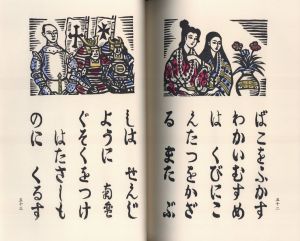 ばこをふかす
わかいむすめ
は くびにこ
んたつをかざ
る またぶ
五十二
しは せんじ
ように 南蛮
ぐそくをつけ
はたさしも
のに くるす
五十三